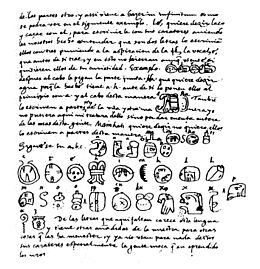 de las partes otro, y assi viene a hazer in infinitum como
se podra ver en el siguiente exemplo. Le, quiere dezir laço
y caçar con el, para escrivirle con sus carateres aviendo
les nosotros hecho entender que son dos letras lo escrivian
ellos con tres poniendo a la aspiracion de la l, la vocal e,
que antes de si trae, y en esto no hierran
quisieren ellos de su curiosidad. Exemplo.
despues al cabo le pegan la parte junta. Ha que quiere dezir
agua porq la hache tiene a, h, ante de si la ponen ellos al
principio con a, y al cabo desta manera
lo escriven a partes de la una y otra manera
no pusiera aqui ni tratara dello sino por dar cuenta entera
de las cosas desta gente. Mainkati quiere dezir no quiero ellos
lo escriven a partes desta manera
Siguese su a, b, c.
De las letras que aqui faltan carece esta lengua
y tiene otras añadidas de la nuestra para otras
cosas q las ha menester, y ya no usan para nada destos
sus carateres especialmente la gente moça q an aprendido
los nros